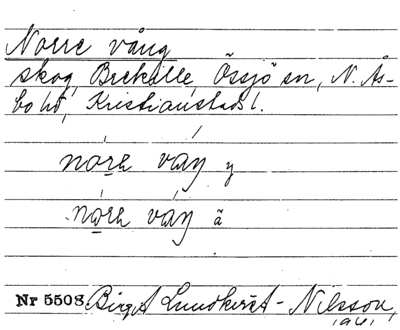 Norre vång
skog, Brehälle, Össjö sn, N. Ås-
bo hd, Kristianstads l.
nórə váŋ y
nórə váŋ ä
Nr 5508 Birgit Lundkvist-Nilsson,
1941